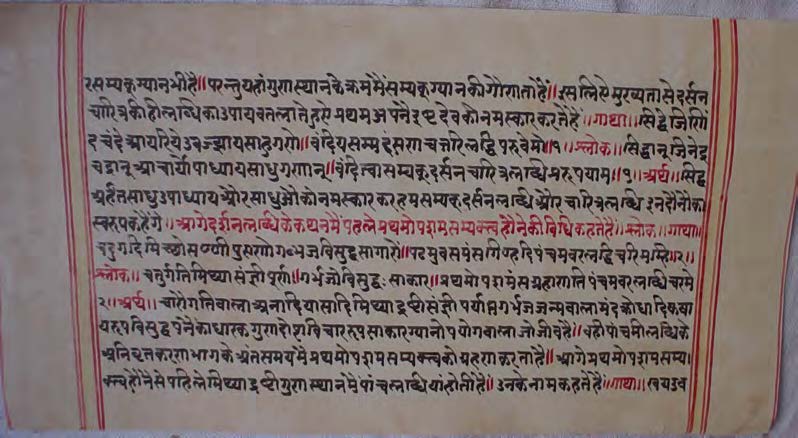 रसम्यक्ग्यानभीहै॥परन्तुयहांगुणस्थानकेक्रममेंसम्यक्ग्यानकीगौणताहै॥इसलिएमुख्यतासेदर्सन
चारित्रकीहीलब्धिकाउपायबतलातेहुएप्रथमअपनेइष्टदेवकोनमस्कारकरतेहैं॥गाथा॥सिद्धेजिणिं
दचंदेआयरियेउवज्झायसाहुगणे॥वंदियसम्मद्दंसणचरित्तलद्धिंपरुवेमो॥१॥श्लोक॥सिद्धान्जिनेंद्र
चद्रान्आचार्योपाध्यायसाधुगणान्॥वंदित्वासम्यक्दर्सनचारित्रलब्धिप्ररुपयाम॥१॥अर्थ॥सिद्ध
अर्हंतसाधुउपाध्यायऔरसाधुऔकोनमस्कारकरहमसम्यक्दर्सनलब्धिऔरचारित्रलब्धिइनदोनोंका
स्वरुपकहेंगे॥आगेदर्शनलब्धिकेकथनमेंपहलेप्रथमोपशमसम्यक्त्वहौनेकीविधिकहतेहैं॥श्लोक॥गाथा॥
चदुगदिमिच्छोसण्णीपुण्णोगब्भजविसुद्धसागारो॥पढमुवसमंसगिण्हदिपंचमवरलद्धिचरिमम्हि॥२॥
श्लोक॥चतुर्गतिमिथ्यासंज्ञीपूर्णः॥गर्भजोविसुद्धःसाकार॥प्रथमोपशमंसग्रहाणतिपंचमवरलब्धिचरमे
२॥अर्थ॥चारोंगतिवालाअनादियासादिमिथ्याद्रष्टीसंज्ञीपर्याप्तगर्भजजन्मवालामंदक्रोधादिकषा
यरुपविसुद्धपनेकाधारकगुणदोशविचाररुपसाकारग्यानोपयोगवालाजोजीवहै॥वहीपांचमीलब्धिके
अनिवृतकरणभागकेअंतसमयमेंप्रथमोपशमसम्यक्त्वकोग्रहणकरताहै॥आगेप्रथमोपशमसम्य
क्त्वहौनैसेपहिलेमिथ्याद्रष्टीगुणस्थानमेंपांचलब्धियांहोतीहैं॥उनकेनामकहतेहैं॥गाथा॥खयउव